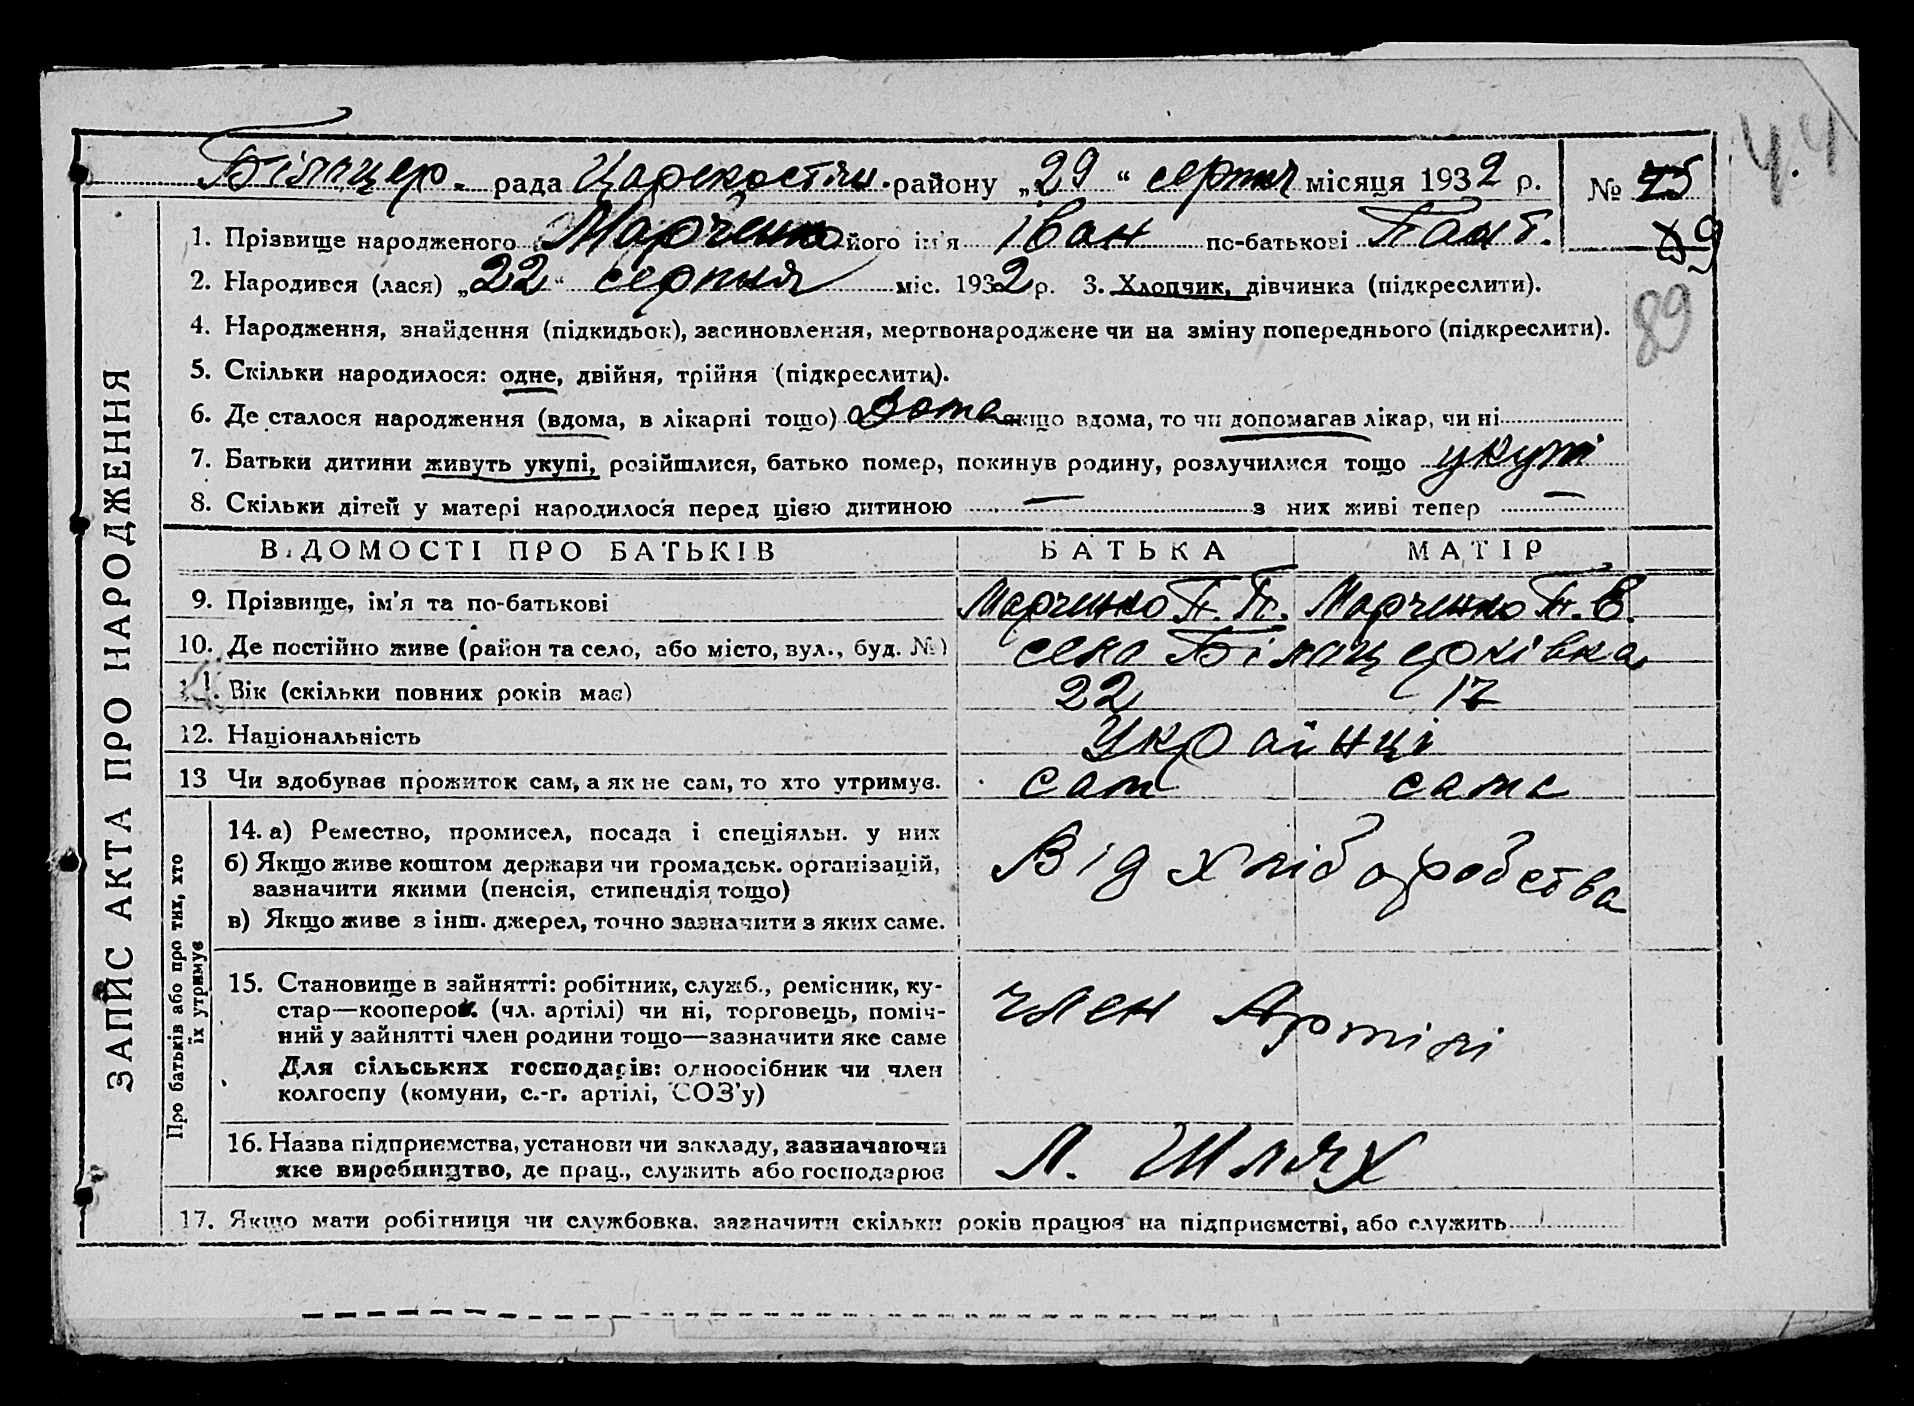 Білацер. рада район у „29“ серпня місяця 1932 р. №
1. Прізвище народженого Марченко його ім'я Іван по-батькові Пант.
2. Народився (лася) „22“ серпня міс. 1932 р. 3. Хлопчик, дівчинка (підкреслити).
89
4. Народження, знайдення (підкидьок), засиновлення, мертвонароджене чи на зміну попереднього (підкреслити).
5. Скільки народилося: одне, двійня, трійня (підкреслити).
6. Де сталося народження (вдома, в лікарні тощо) Дома якщо вдома, то чи допомагав лікар, чи ні
7. Батьки дитини живуть укупі, розійшлися, батько помер, покинув родину, розлучилися тощо укупі
8. Скільки дітей у матері народилося перед цією дитиною — з них живі тепер —
ЗАПИС АКТА ПРО НАРОДЖЕННЯ
ВІДОМОСТІ ПРО БАТЬКІВ БАТЬКА МАТІР
9. Прізвище, ім'я та по-батькові Марченко П. П. Марченко П. Є.
10. Де постійно живе (район та село, або місто, вул., буд. №) село Білацерківка
11. Вік (скільки повних років має) 22 17
12. Національність Українці
13 Чи здобуває прожиток сам, а як не сам, то хто утримує. сам сама
Про батьків або про тих, хто
їх утримує
14. а) Ремество, промисел, посада і спеціяльн. у них
б) Якщо живе коштом держави чи громадськ. організацій,
зазначити якими (пенсія, стипендія тощо)
в) Якщо живе з інш. джерел, точно зазначити з яких саме.
Від хліборобства
15. Становище в зайнятті: робітник, служб., ремісник, ку-
стар—коопером. (чл. артілі) чи ні, торговець, поміч-
ний у зайнятті член родини тощо—зазначити яке саме
Для сільських господарів: одноосібник чи член
колгоспу (комуни, с.-г. артілі, СОЗ'у)
член Артілі
16. Назва підприємства, установи чи закладу, зазначаючи
яке виробництво, де прац., служить або господарює
Л. Шлях
17. Якщо мати робітниця чи службовка, зазначити скільки років працює на підприємстві, або служить